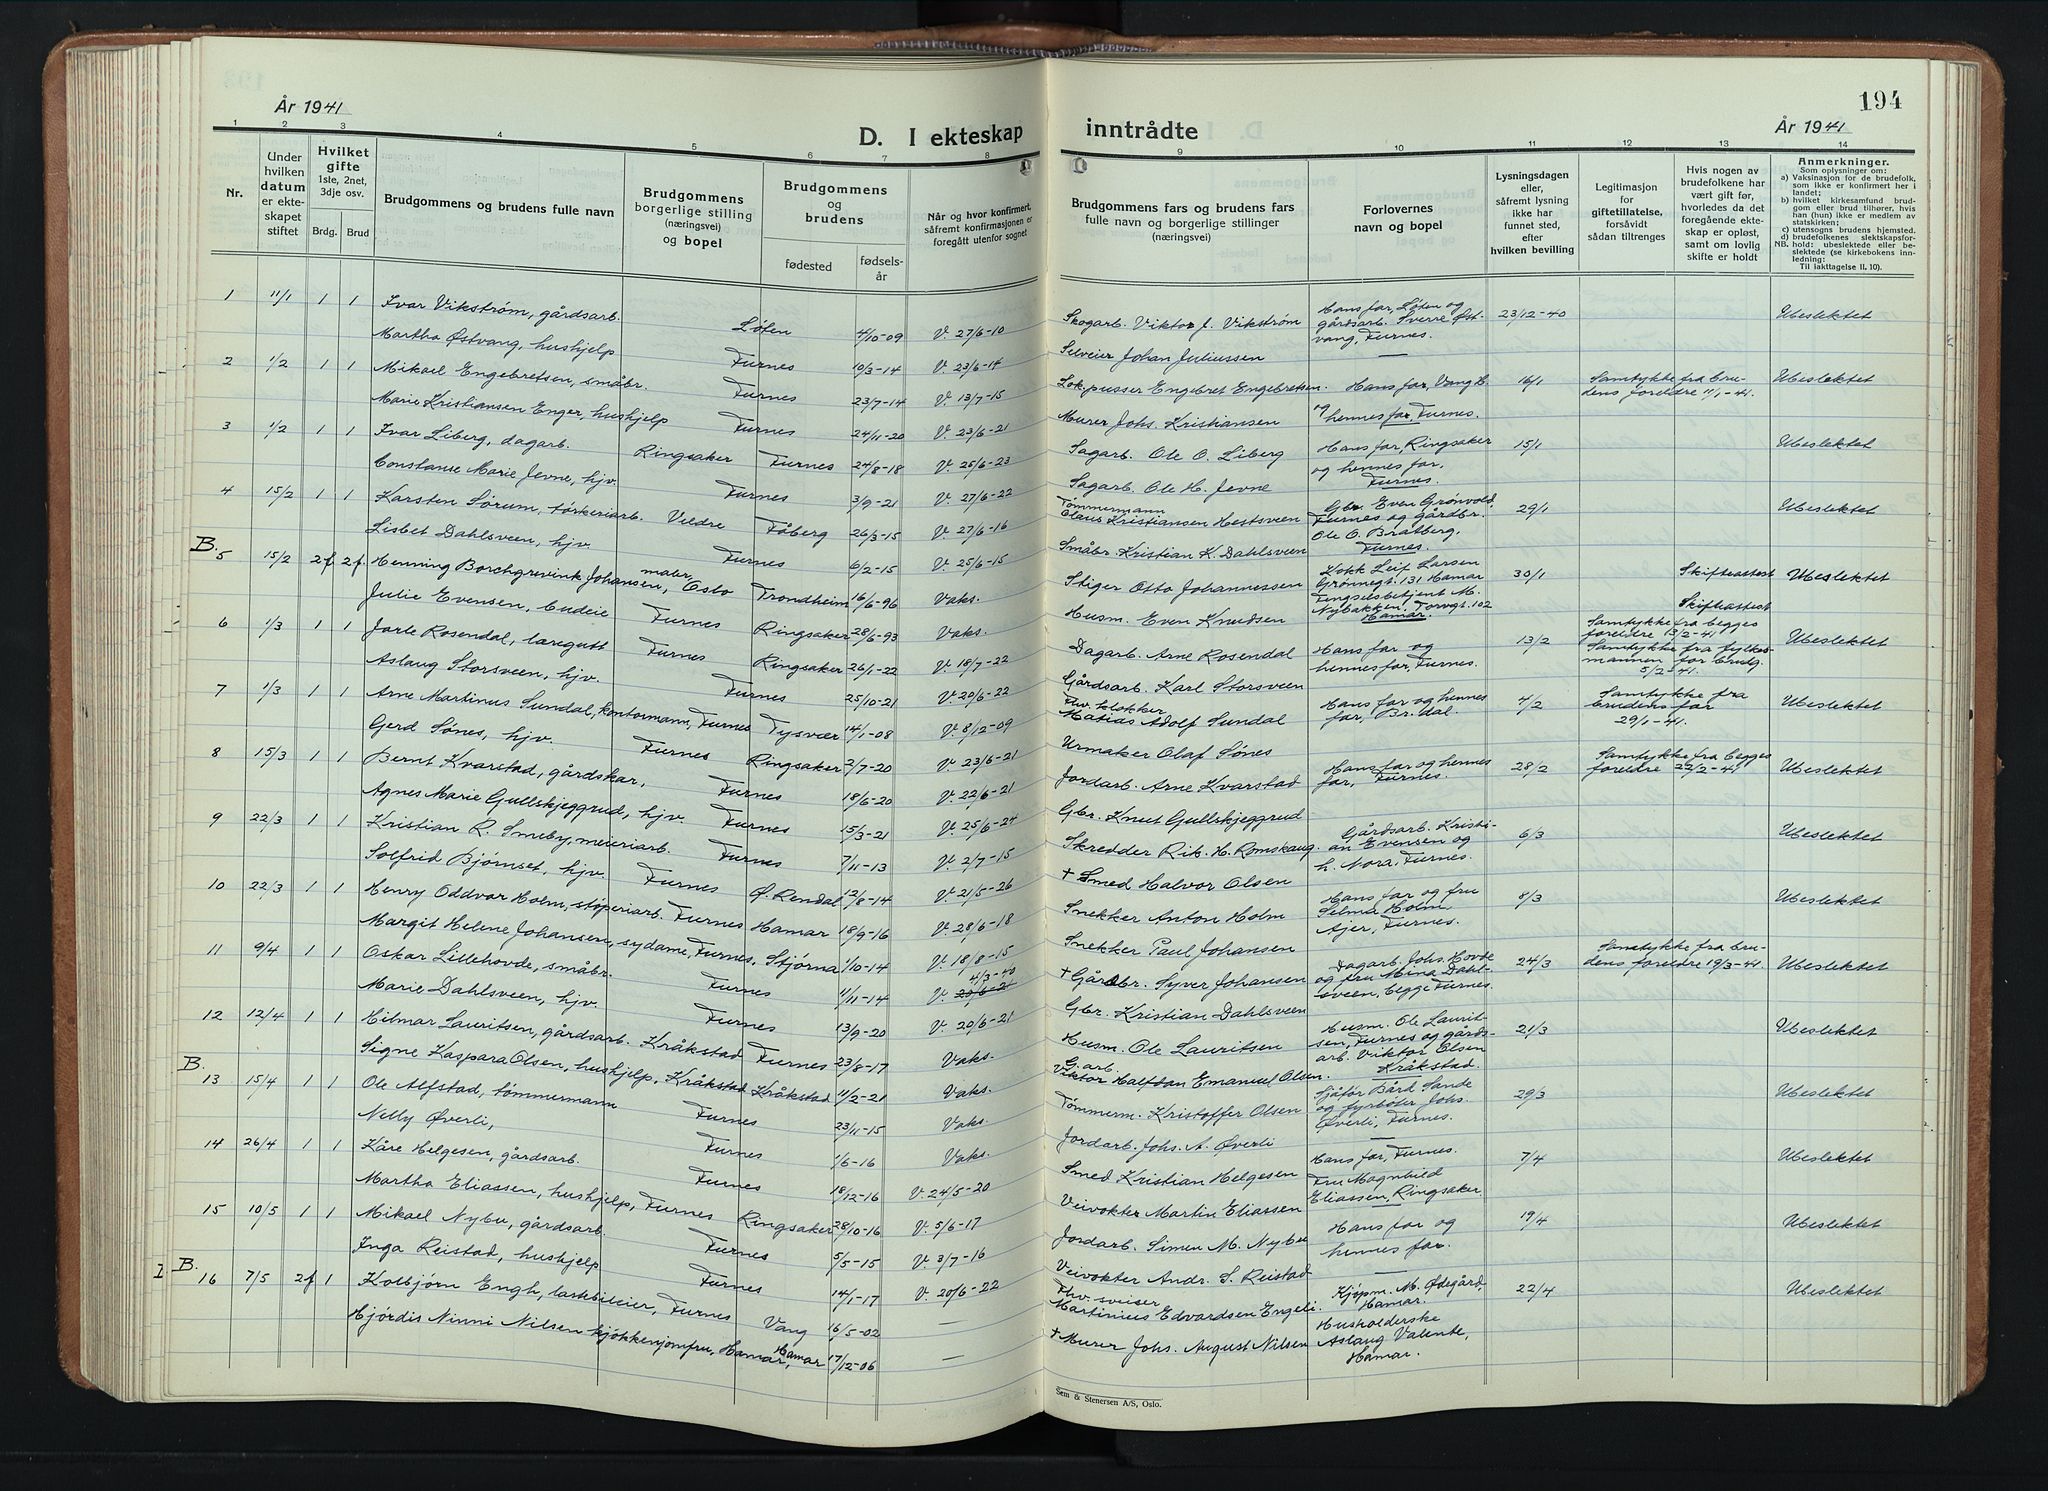 År 1941
194
År 1941
D. I ekteskap inntrådte
1 2 3 4 5 6 7 8 9 10 11 12 13 14
Nr.
Under hvilken datum er ekteskapet stiftet
Hvilket gifte 1ste, 2net, 3dje osv.
Brdg. Brud
Brudgommens og brudens fulle navn
Brudgommens borgerlige stilling (næringsvei) og bopel
Brudgommens og brudens
fødested fødselsår
Når og hvor konfirmert, såfremt konfirmasjonen er foregått utenfor sognet
Brudgommens fars og brudens fars fulle navn og borgerlige stillinger (næringsvei)
Forlovernes navn og bopel
Lysningsdagen eller, såfremt lysning ikke har funnet sted, efter hvilken bevilling
Legitimasjon for giftetillatelse, forsåvidt sådan tiltrenges
Hvis nogen av brudefolkene har vært gift før, hvorledes da det foregående ekteskap er opløst, samt om lovlig skifte er holdt
Anmerkninger.
Som oplysning om:
a) Vaksinasjon for de brudefolk, som ikke er konfirmert her i landet;
b) hvilket kirkesamfund brudgom eller brud tilhører, hvis han (hun) ikke er medlem av statskirken;
c) utensogns brudens hjemsted.
d) brudefolkenes slektskapsforhold: ubeslektede eller beslektede (se kirkebokens innledning:
NB. Til iakttagelse II. 10).
1 11/1 1 1 Ivar Vikstrøm, gårdsarb. Løten 4/10-09 V. 27/6-10 Skogarb. Viktor J. Vikstrøm Hans far, Løten og gårdsarb. Sverre Østvang, Furnes. 23/12-40 Ubeslektet
Martha Østvang, hushjelp Furnes 10/3-14 V. 23/6-14 Selveier Johan Juliussen —
2 1/2 1 1 Mikael Engebretsen, småbr. Furnes 23/7-14 V. 13/7-15 Lok.pusser Engebret Engebretsen. Hans far, Vang H. 16/1 Samtykke fra brudens foreldre 11/1-41. Ubeslektet
Marie Kristiansen Enger, hushjelp Furnes 24/11-20 V. 23/6-21 Murer Johs. Kristiansen og hennes far, Furnes.
3 1/2 1 1 Ivar Liberg, dagarb. Ringsaker Furnes 24/8-18 V. 25/6-23 Sagarb. Ole O. Liberg Hans far, Ringsaker og hennes far, Furnes. 15/1 Ubeslektet
Constanse Marie Jevne, hjv. Furnes 3/9-21 V. 27/6-22 Sagarb. Ole H. Jevne
4 15/2 1 1 Karsten Sørum, tørkeriarb. Veldre Fåberg 26/3-15 V. 27/6-16 Tømmermann Claus Kristiansen Hestsveen Gbr. Even Grønvold, Furnes og gårdbr. Ole O. Bratberg, Furnes. 29/1 Ubeslektet
Lisbet Dahlsveen, hjv. Furnes 6/2-15 V. 25/6-15 Småbr. Kristian K. Dahlsveen
B. 5 15/2 2f 2f. Henning Borchgrevink Johansen, maler, Oslo Trondheim 16/6-96 Vaks. Stiger Otto Johannessen Kokk Leif Larsen Grønnegt. 131 Hamar 30/1 Skifteattest Ubeslektet
Julie Evensen, budeie Furnes Ringsaker 28/6-93 Vaks. Husm. Even Knudsen Fengselsbetjent M. Nybakken, Torvgt. 102 Hamar. Skifteattest
6 1/3 1 1 Jarle Rosendal, læregutt Furnes Ringsaker 26/1-22 V. 18/7-22 Dagarb. Arne Rosendal Hans far og hennes far, Furnes. 13/2 Samtykke fra begges foreldre 13/2-41 Samtykke fra fylkesmannen for brudg. 5/2-41. Ubeslektet
Aslaug Storsveen, hjv. Furnes 25/10-21 V. 20/6-22 Gårdsarb. Karl Storsveen
7 1/3 1 1 Arne Martinus Sundal, kontormann, Furnes Tysvær 14/1-08 V. 8/12-09 Fhv. klokker Matias Adolf Sundal Hans far og hennes far, Br.dal. 4/2 Samtykke fra brudens far 29/1-41. Ubeslektet
Gerd Sønes, hjv. Furnes Ringsaker 2/7-20 V. 23/6-21 Urmaker Olaf Sønes
8 15/3 1 1 Bernt Kvarstad, gårdskar, Furnes 18/6-20 V. 22/6-21 Jordarb. Arne Kvarstad Hans far og hennes far, Furnes. 28/2 Samtykke fra begges foreldre 22/2-41 Ubeslektet
Agnes Marie Gullskjeggrud, hjv. Furnes 15/3-21 V. 25/6-24 Gbr. Knut Gullskjeggrud
9 22/3 1 1 Kristian R. Smeby, meieriarb. Furnes 7/11-13 V. 2/7-15 Skredder Rik. H. Romskaug. Gårdsarb. Kristian Evensen og h. Nora, Furnes. 6/3 Ubeslektet
Solfrid Bjørnset, hjv. Furnes Ø. Rendal 12/8-14 V. 21/5-26 + Smed Halvor Olsen
10 22/3 1 1 Henry Oddvar Holm, støperiarb. Furnes Hamar 18/9-16 V. 28/6-18 Snekker Anton Holm Hans far og fru Selma Holm Ajer, Furnes. 8/3 Ubeslektet
Margit Helene Johansen, sydame, Furnes. Stjørna 1/10-14 V. 18/8-15 Snekker Paul Johansen
11 9/4 1 1 Oskar Lillehovde, småbr. Furnes 1/11-14 V. 4/3-40 20/6-21 + Gårdbr. Syver Johansen Dagarb. Johs. Hovde og fru Mina Dahlsveen, begge Furnes. 24/3 Samtykke fra brudens foreldre 19/3-41. Ubeslektet
Marie Dahlsveen, hjv. Furnes 13/9-20 V. 20/6-21 Gbr. Kristian Dahlsveen
12 12/4 1 1 Hilmar Lauritsen, gårdsarb. Kråkstad Furnes 23/8-17 Vaks. Husm. Ole Lauritsen Husm. Ole Lauritsen, Furnes og gårdsarb. Viktor Olsen Kråkstad. 21/3 Ubeslektet
Signe Kaspara Olsen, hushjelp, Kråkstad Kråkstad 11/2-21 Vaks. G.arb. Viktor Halfdan Emanuel Olsen.
B. 13 15/4 1 1 Ole Alfstad, tømmermann Furnes 23/11-15 Vaks. Tømmerm. Kristoffer Olsen Sjåfør Bård Sande og fyrbøter Johs. Øverli, Furnes. 29/3 Ubeslektet
Nelly Øverli, Furnes 1/6-16 Vaks. Jordarb. Johs. A. Øverli —
14 26/4 1 1 Kåre Helgesen, gårdsarb. Furnes 18/12-16 V. 24/5-20 Smed Kristian Helgesen Hans far, Furnes. Fru Magnhild Eliassen, Ringsaker 7/4 Ubeslektet
Martha Eliassen, hushjelp, Furnes Ringsaker 28/10-16 V. 5/6-17 Veivokter Martin Eliassen
15 10/5 1 1 Mikael Nybu, gårdsarb. Furnes 5/5-15 V. 3/7-16 Jordarb. Simen M. Nybu Hans far og hennes far. 19/4 Ubeslektet
Inga Reistad, hushjelp Furnes 14/1-17 V. 20/6-22 Veivokter Andr. S. Reistad —
I B. 16 7/5 2f 1 Kolbjørn Engh, lastebileier, Furnes Vang 16/5-02 — Fhv. sveiser Martinius Edvardsen Engeli. Kjøpm. M. Ødegård, Hamar. 22/4 Ubeslektet
Hjørdis Ninni Nilsen kjøkkenjomfru, Hamar, Hamar 17/12-06 — + Murer Johs. August Nilsen Husholderske Aslaug Valente, Hamar.
Sem & Stenersen A/S, Oslo.